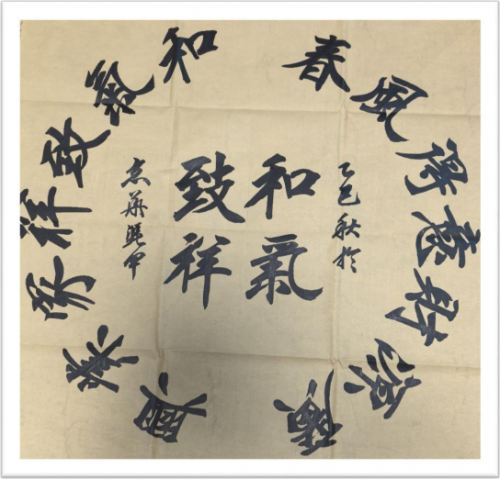 春風得意財源隆
和氣致祥家業興
乙巳秋於
和氣
致祥
京華